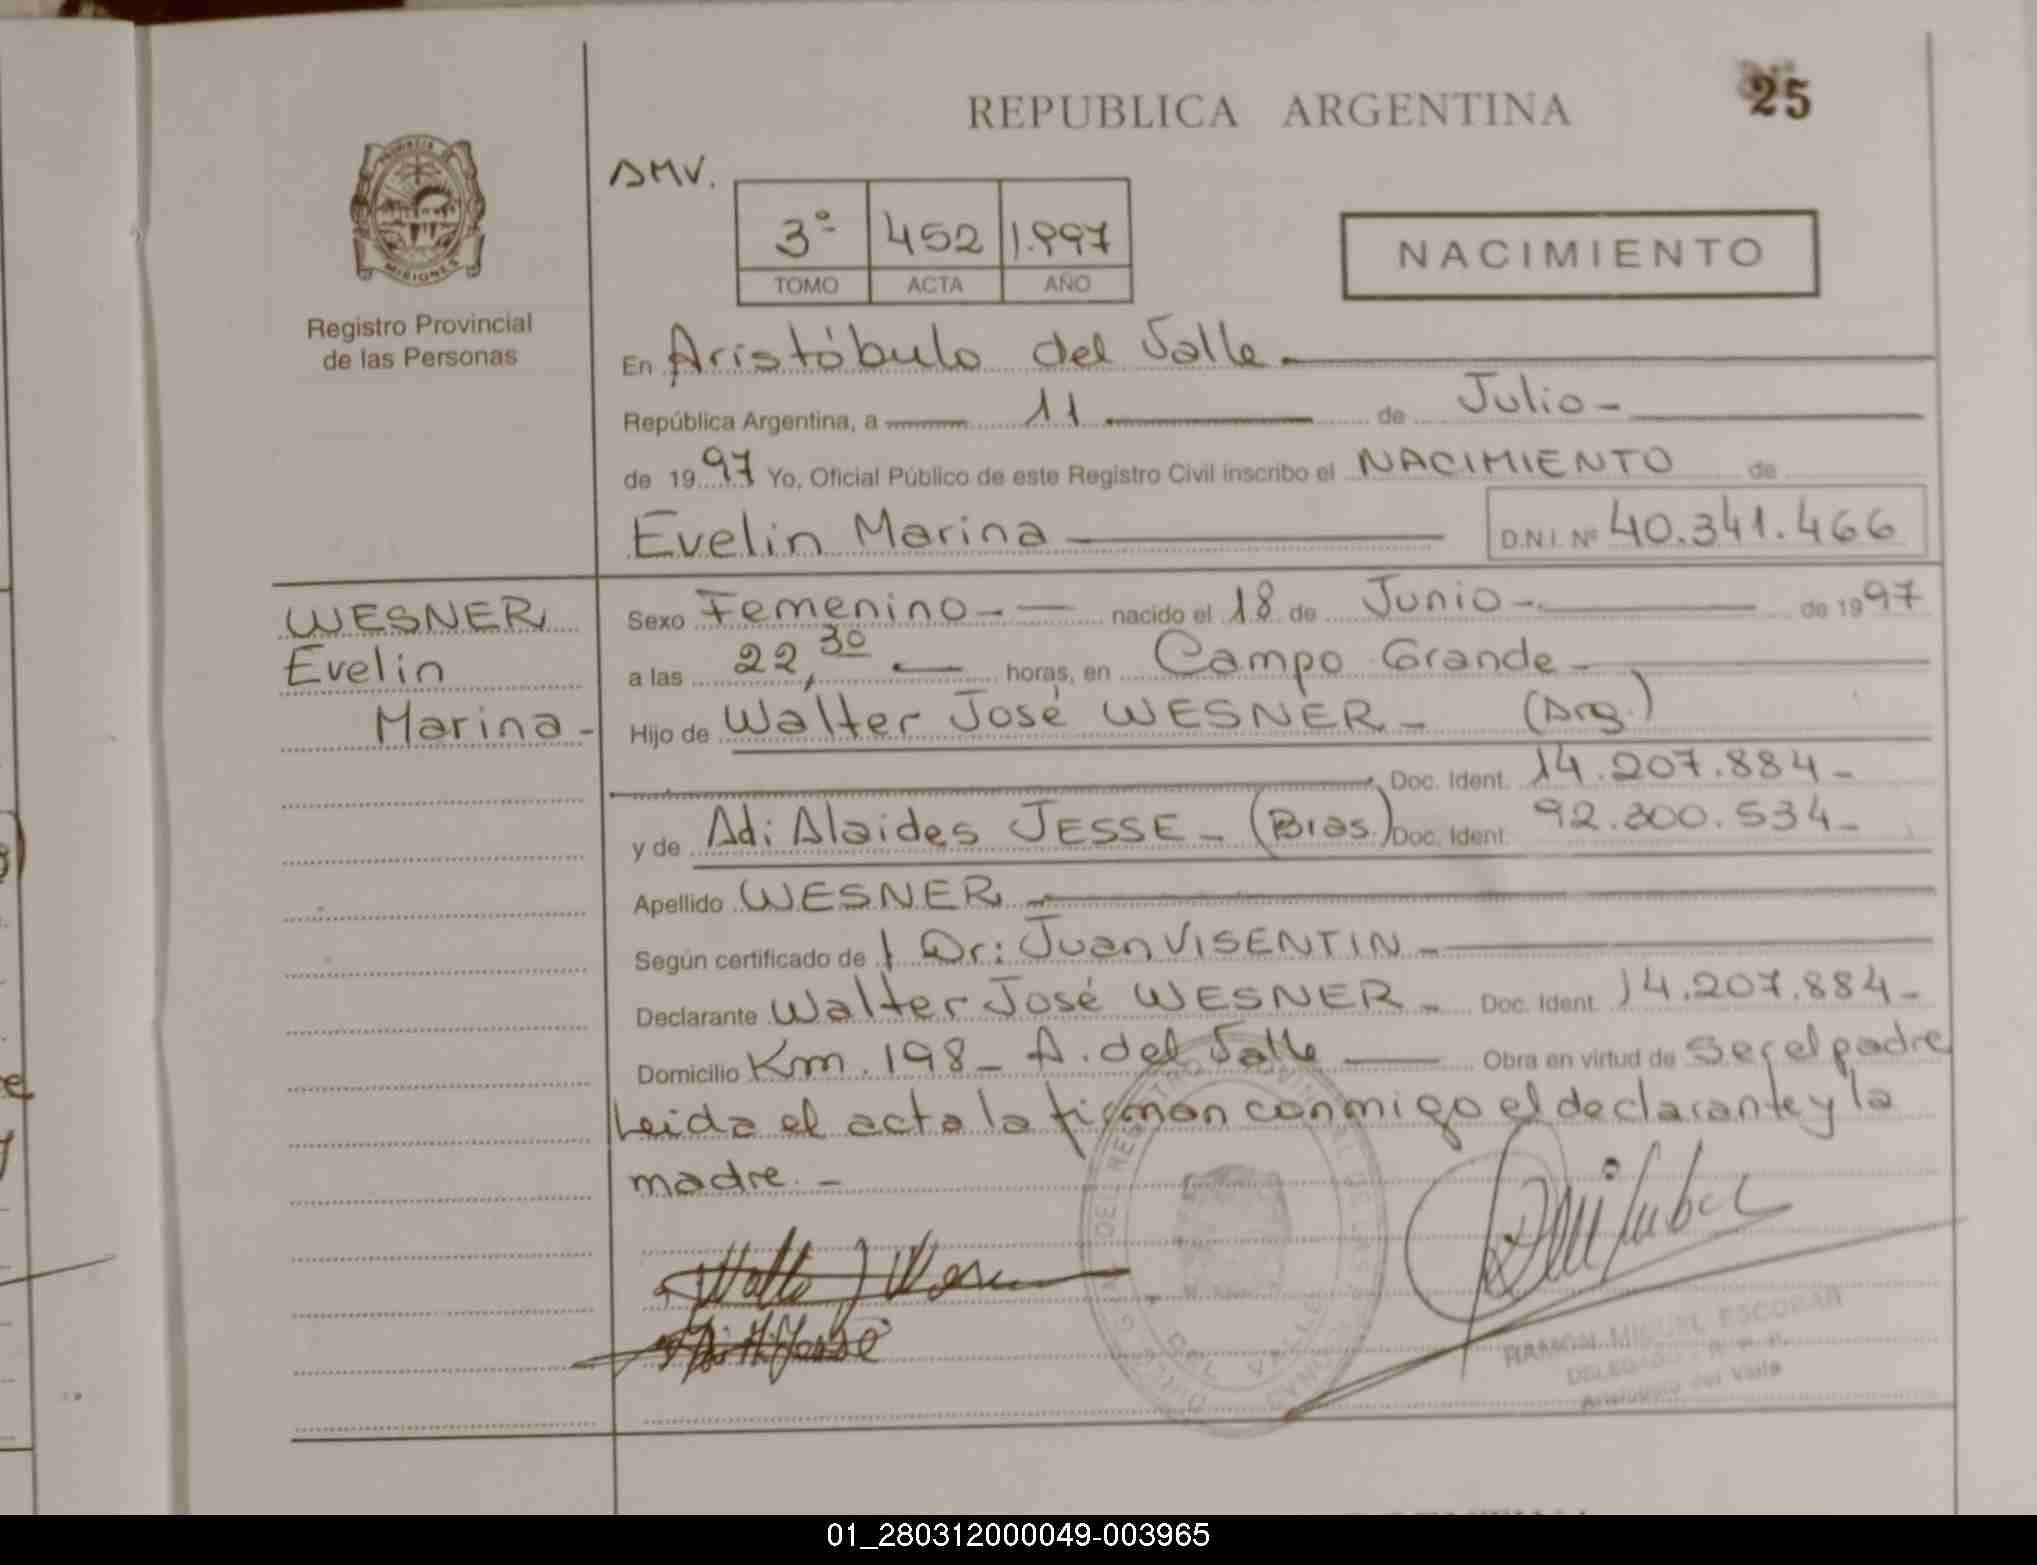 REPUBLICA ARGENTINA
25
PROVINCIA DE
MISIONES
Registro Provincial
de las Personas
AMV.
3º 452 1.997
TOMO ACTA AÑO
NACIMIENTO
En Aristóbulo del Valle.
República Argentina, a 11 de Julio-
de 1997 Yo, Oficial Público de este Registro Civil inscribo el NACIMIENTO de
Evelin Marina D.N.I. Nº 40.341.466
WESNER
Evelin
Marina-
Sexo Femenino-- nacido el 18 de Junio- de 1997
a las 22,30 horas, en Campo Grande-
Hijo de Walter José WESNER- (Arg.)
Doc. Ident. 14.207.884-
y de Adi Alaides JESSE- (Bras.) Doc. Ident. 92.300.534-
Apellido WESNER-
Según certificado de Dr: Juan VISENTIN-
Declarante Walter José WESNER- Doc. Ident. 14.207.884-
Domicilio Km. 198- A. del Valle Obra en virtud de ser el padre
Leida el acta la firman conmigo el declarante y la
madre.-
RAMON MIGUEL ESCOBAR
DELEGADO R. P. P.
Aristóbulo del Valle
01_280312000049-003965